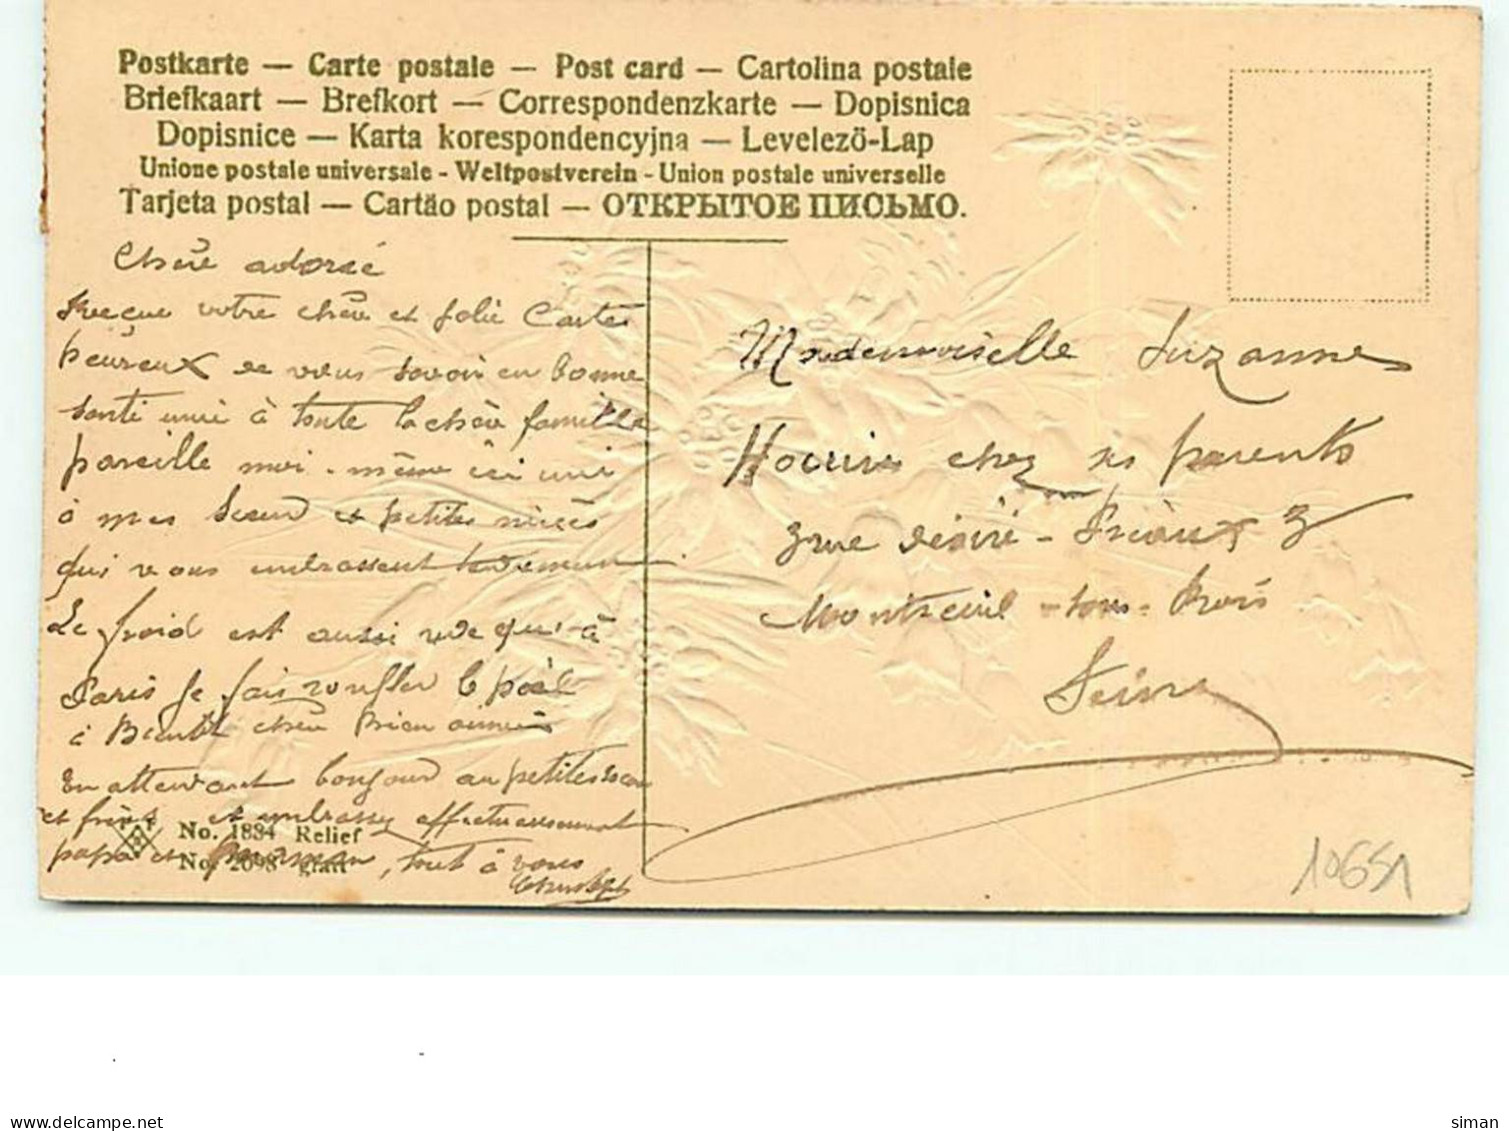 Postkarte — Carte postale — Post card — Cartolina postale
Briefkaart — Brefkort — Correspondenzkarte — Dopisnica
Dopisnice — Karta korespondencyjna — Levelező-Lap
Unione postale universale - Weltpostverein - Union postale universelle
Tarjeta postal — Cartão postal — ОТКРЫТОЕ ПИСЬМО.
Chère adorée
Reçue votre chère et Jolie Carte
heureux de vous savoir en bonne
santé à toute la chère famille
pareille moi-même ici
à mes Soeur et petites nièces
qui vous embrassent tendrement
Le froid est aussi vif qu'à
Paris Je fais ronfler le poêle
à Bientôt chère Bien aimée
En attendant bonjour au petites
et frère et embrassez affectueusement
papa et maman, tout à vous
No. 1884 Relief
No. 2098 glatt
Mademoiselle Suzanne
chez ses parents
3 rue Désiré - Préaux 3
Montreuil - sous - Bois
Seine
10651
delcampe.net
siman